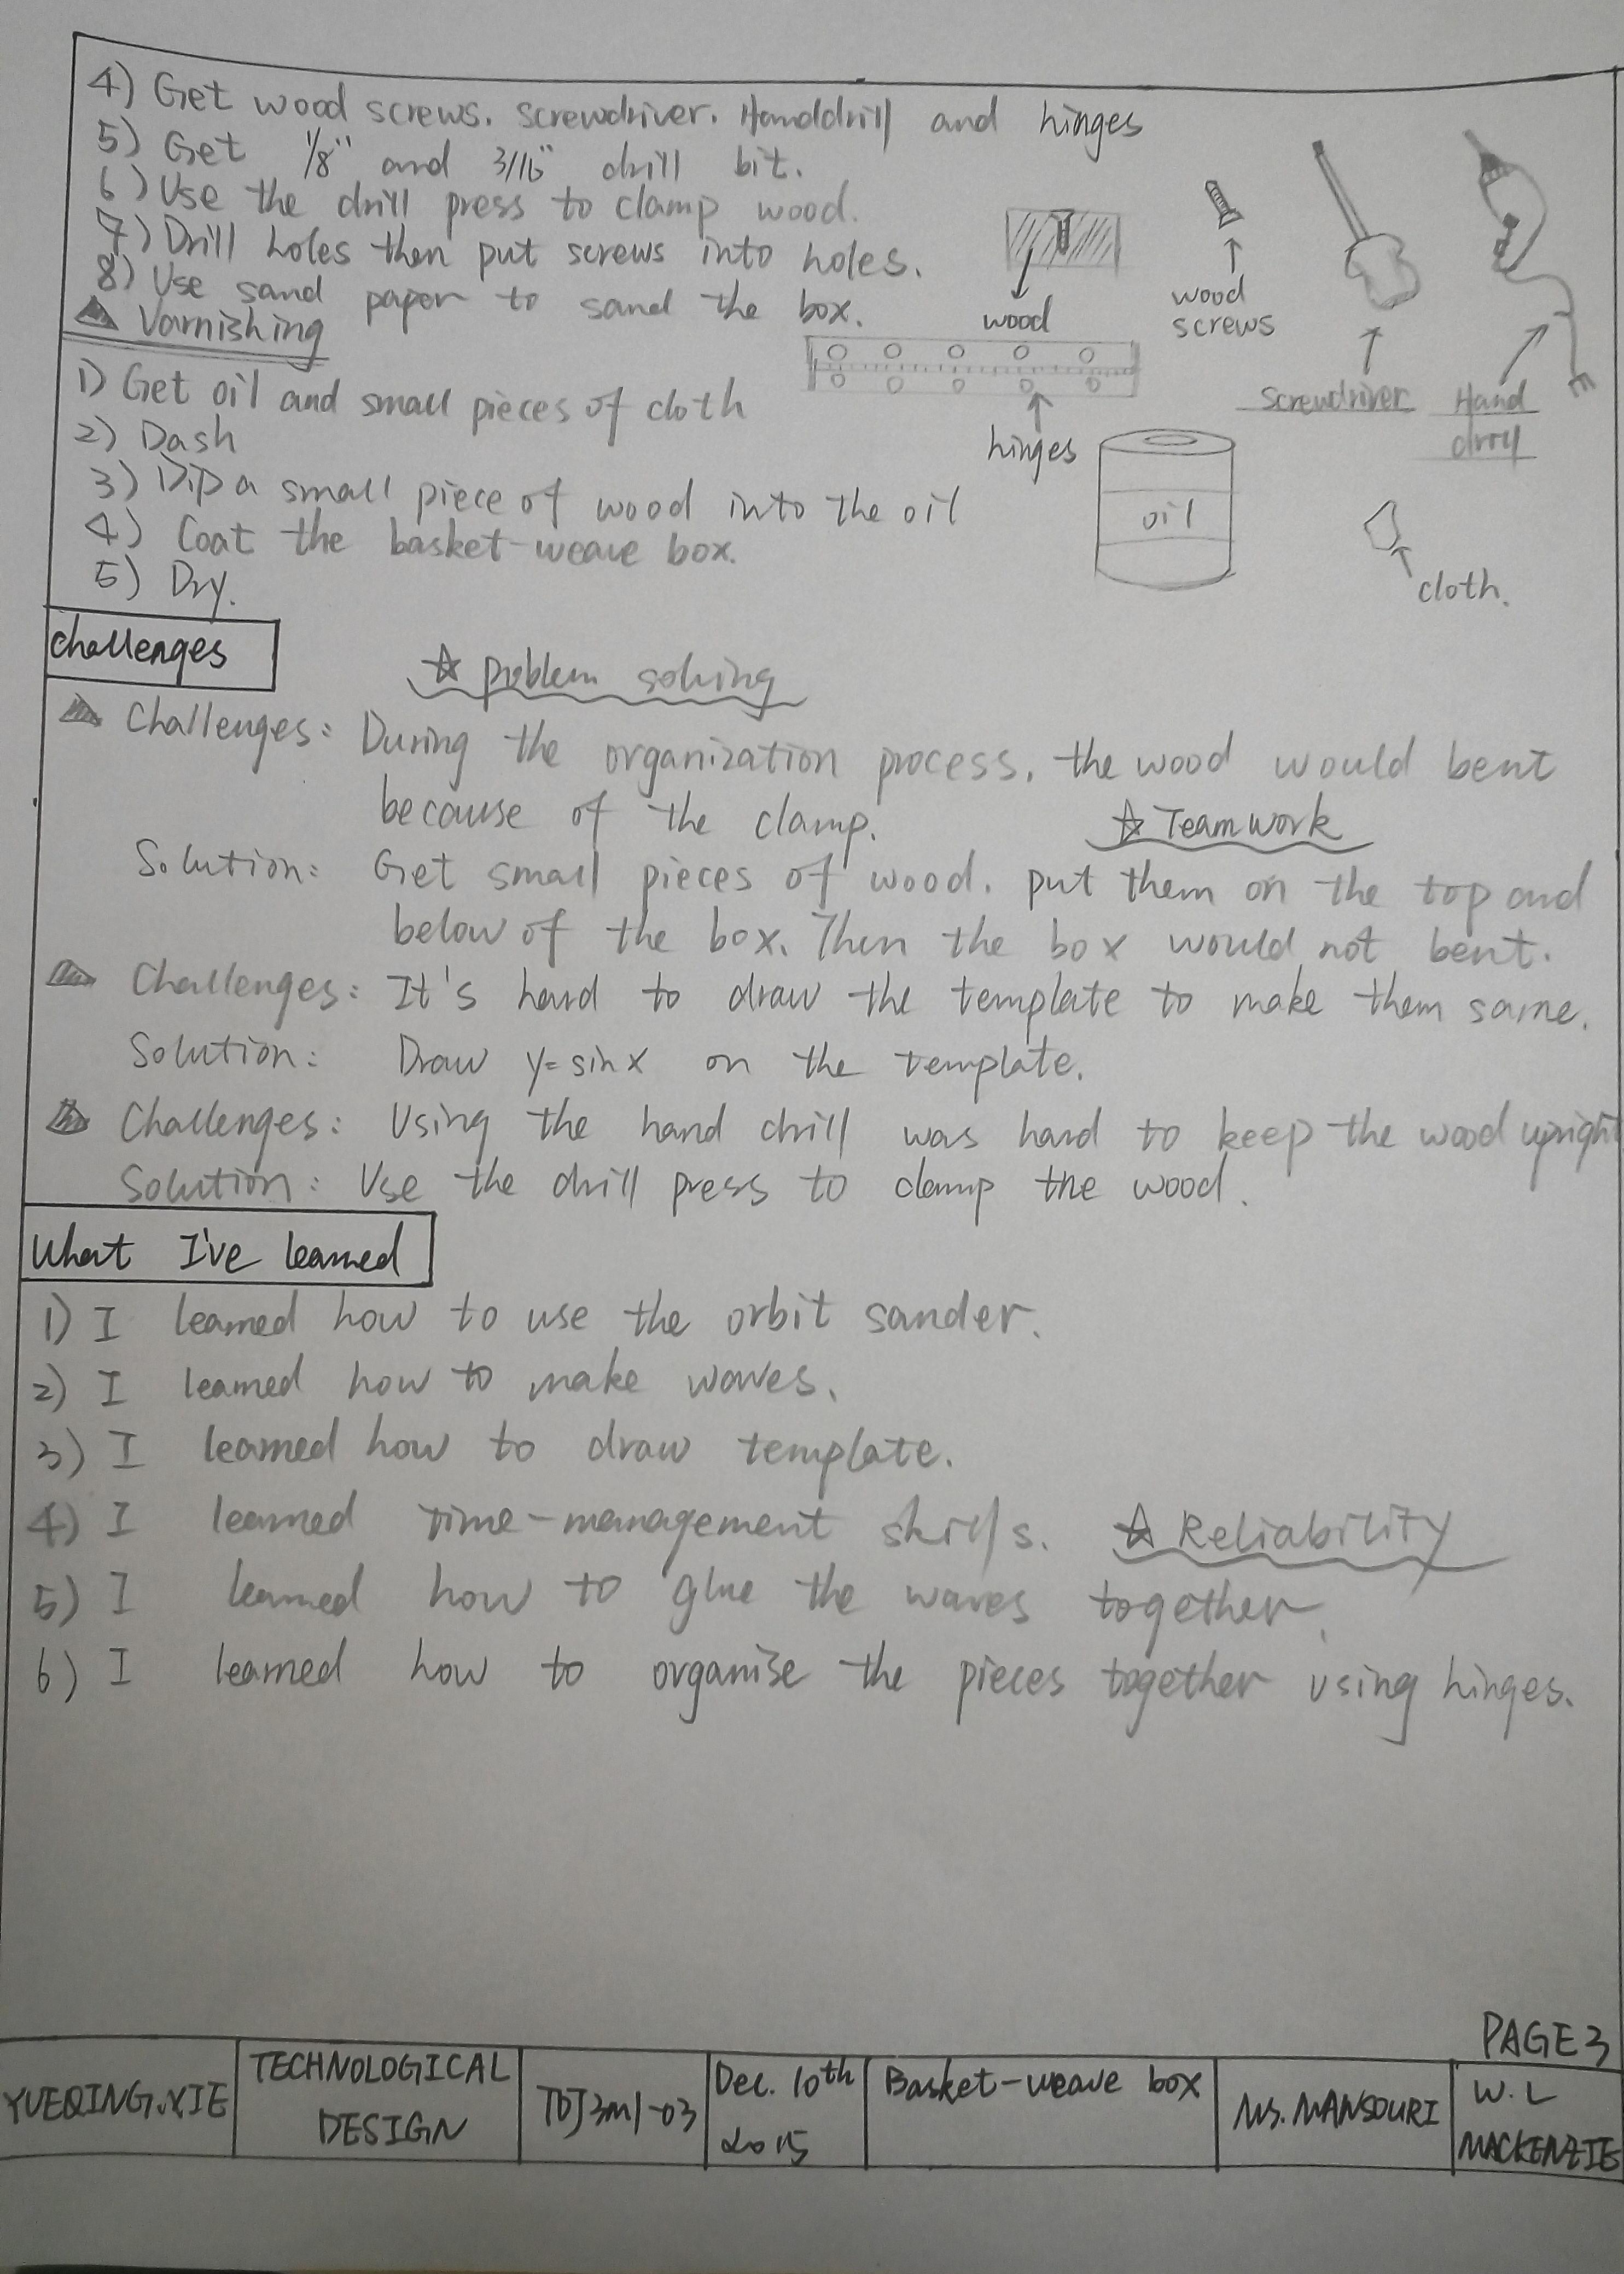 4) Get wood screws. screwdriver. Handdrill and hinges
5) Get 1/8" and 3/16" drill bit.
6) Use the drill press to clamp wood.
7) Drill holes then put screws into holes.
8) Use sand paper to sand the box.
wood
wood screws
screwdriver
Hand drill
hinges
Varnishing
1) Get oil and small pieces of cloth
2) Dash
3) Dip a small piece of wood into the oil
4) Coat the basket-weave box.
5) Dry.
oil
cloth.
Challenges
☆ Problem solving
Challenges: During the organization process, the wood would bent
because of the clamp.
☆ Teamwork
Solution: Get small pieces of wood. put them on the top and
below of the box. Then the box would not bent.
Challenges: It's hard to draw the template to make them same.
Solution: Draw y=sinx on the template.
Challenges: Using the hand drill was hard to keep the wood upright
Solution: Use the drill press to clamp the wood.
What I've learned
1) I learned how to use the orbit sander.
2) I learned how to make waves.
3) I learned how to draw template.
4) I learned time-management skills. ☆ Reliability
5) I learned how to glue the waves together.
6) I learned how to organise the pieces together using hinges.
PAGE 3
YUEQING.XIE
TECHNOLOGICAL
DESIGN
TDJ3M1-03
Dec. 10th
2015
Basket-weave box
Ms. MANSOURI
W.L
MACKENZIE